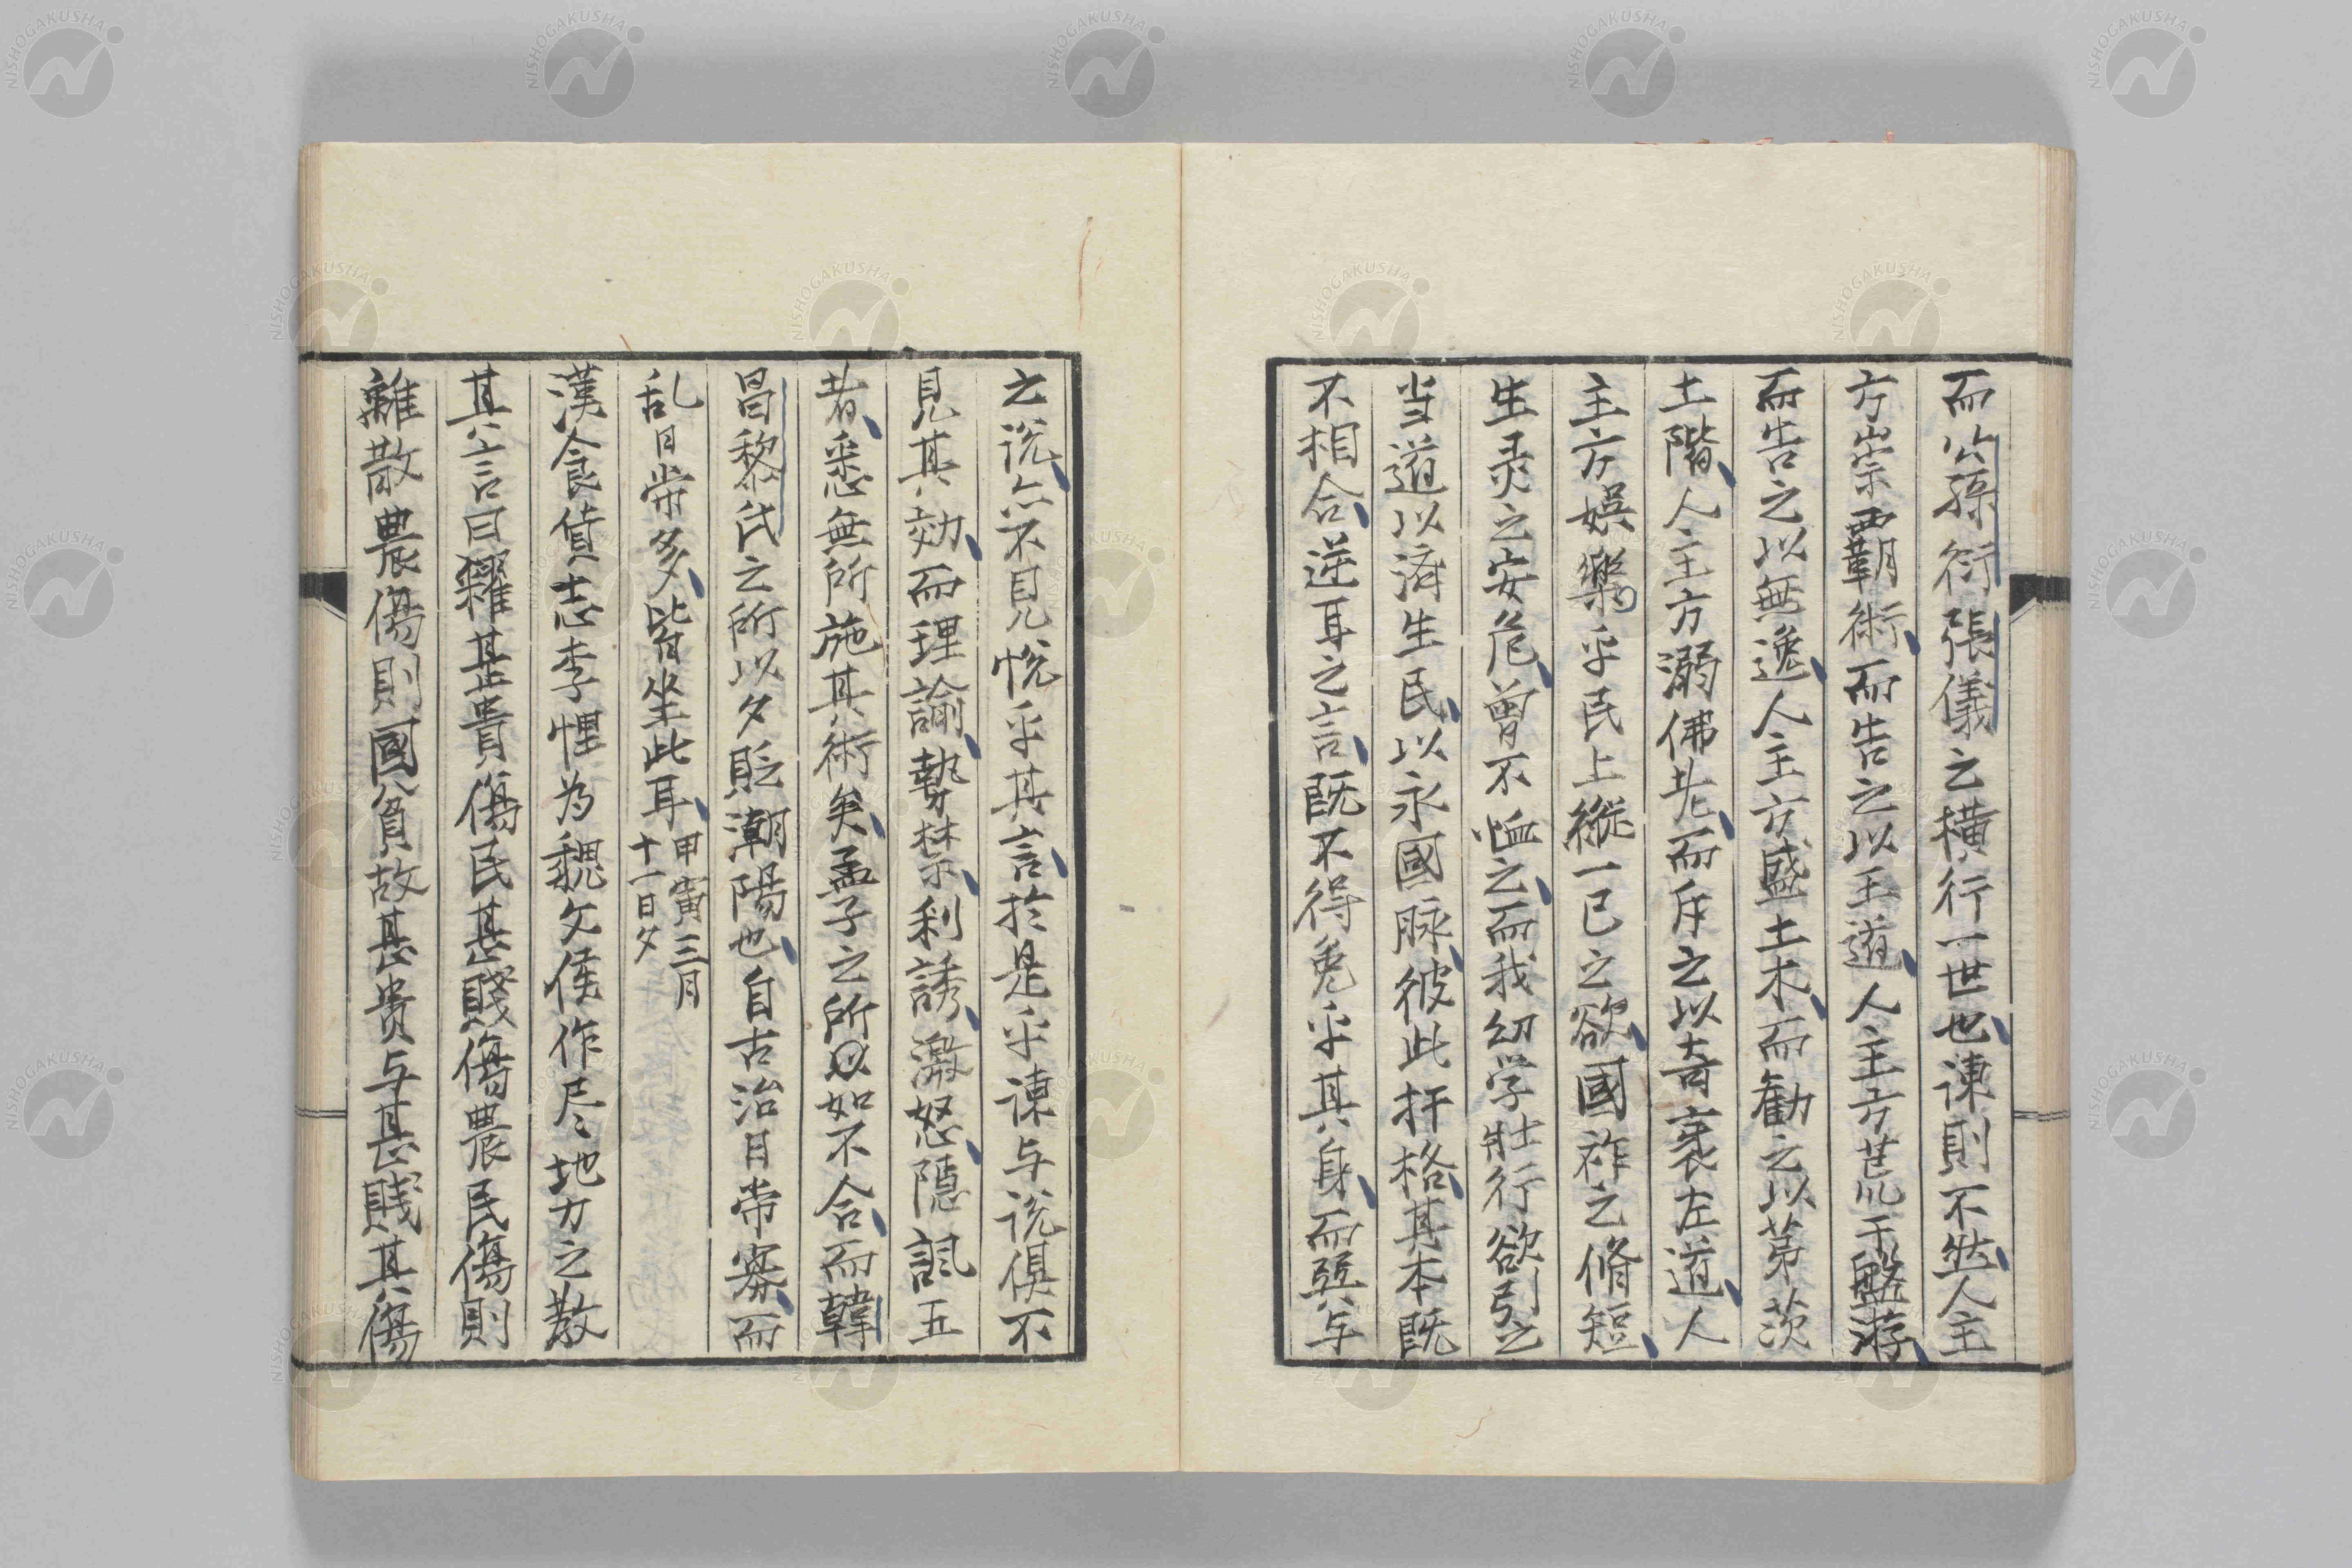 而公孫衍張儀之横行一世也諫則不然人主
方崇覇術而告之以王道人主方荒于盤游
而告之以無逸人主方盛土木而勸之以茅茨
土階人主方溺佛老而斥之以奇衺左道人
主方娯樂乎民上縦一已之欲國祚之脩短
生灵之安危曽不恤之而我幼学壮行欲引之
当道以済生民以永國脉彼此扞格其本既
不相合逆耳之言既不得兔乎其身而與
之说亦不見悦乎其言於是乎諫与说俱不
見其効而理諭勢禁利誘激怒隠諷五
者悉無所施其術矣孟子之所以如不合而韓
昌黎氏之所以夕貶潮陽也自古治日常寡而
乱日常多皆坐此耳甲寅三月
十一日夕
漢食貨志李悝為魏文侯作尽地力之教
其言曰糴甚貴傷民甚賤傷農民傷則
離散農傷則國貧故甚贵与甚賤其傷
NISHOGAKUSHA